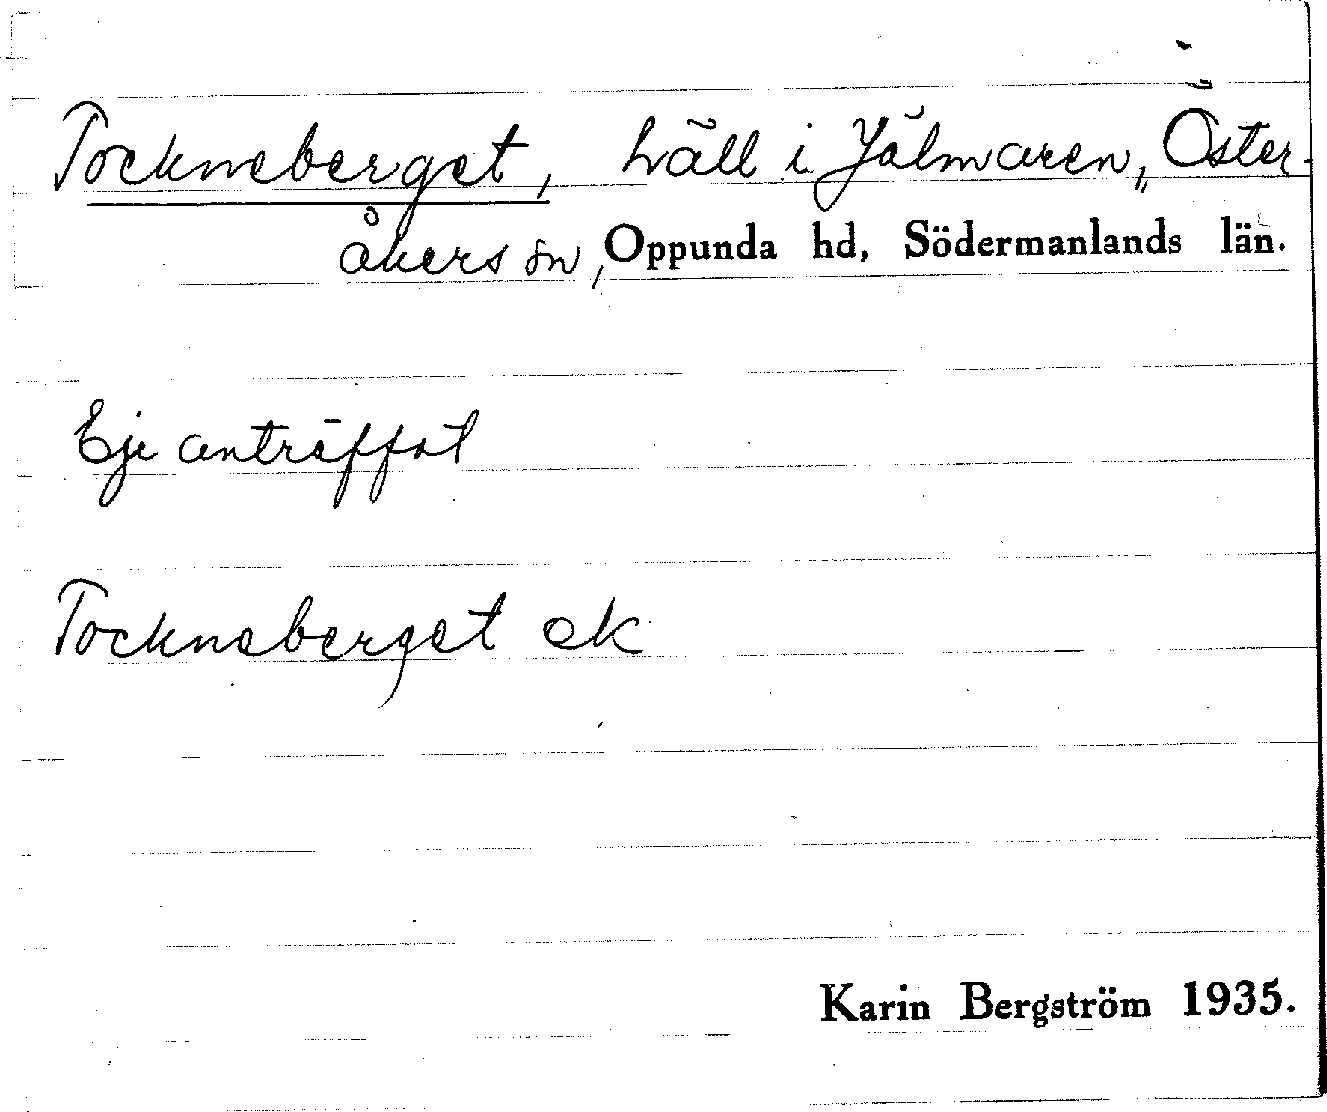 Tockneberget, häll i Jälmaren, Öster-
åkers sn, Oppunda hd, Södermanlands län.
Eje anträffat
Tockneberget ek
Karin Bergström 1935.